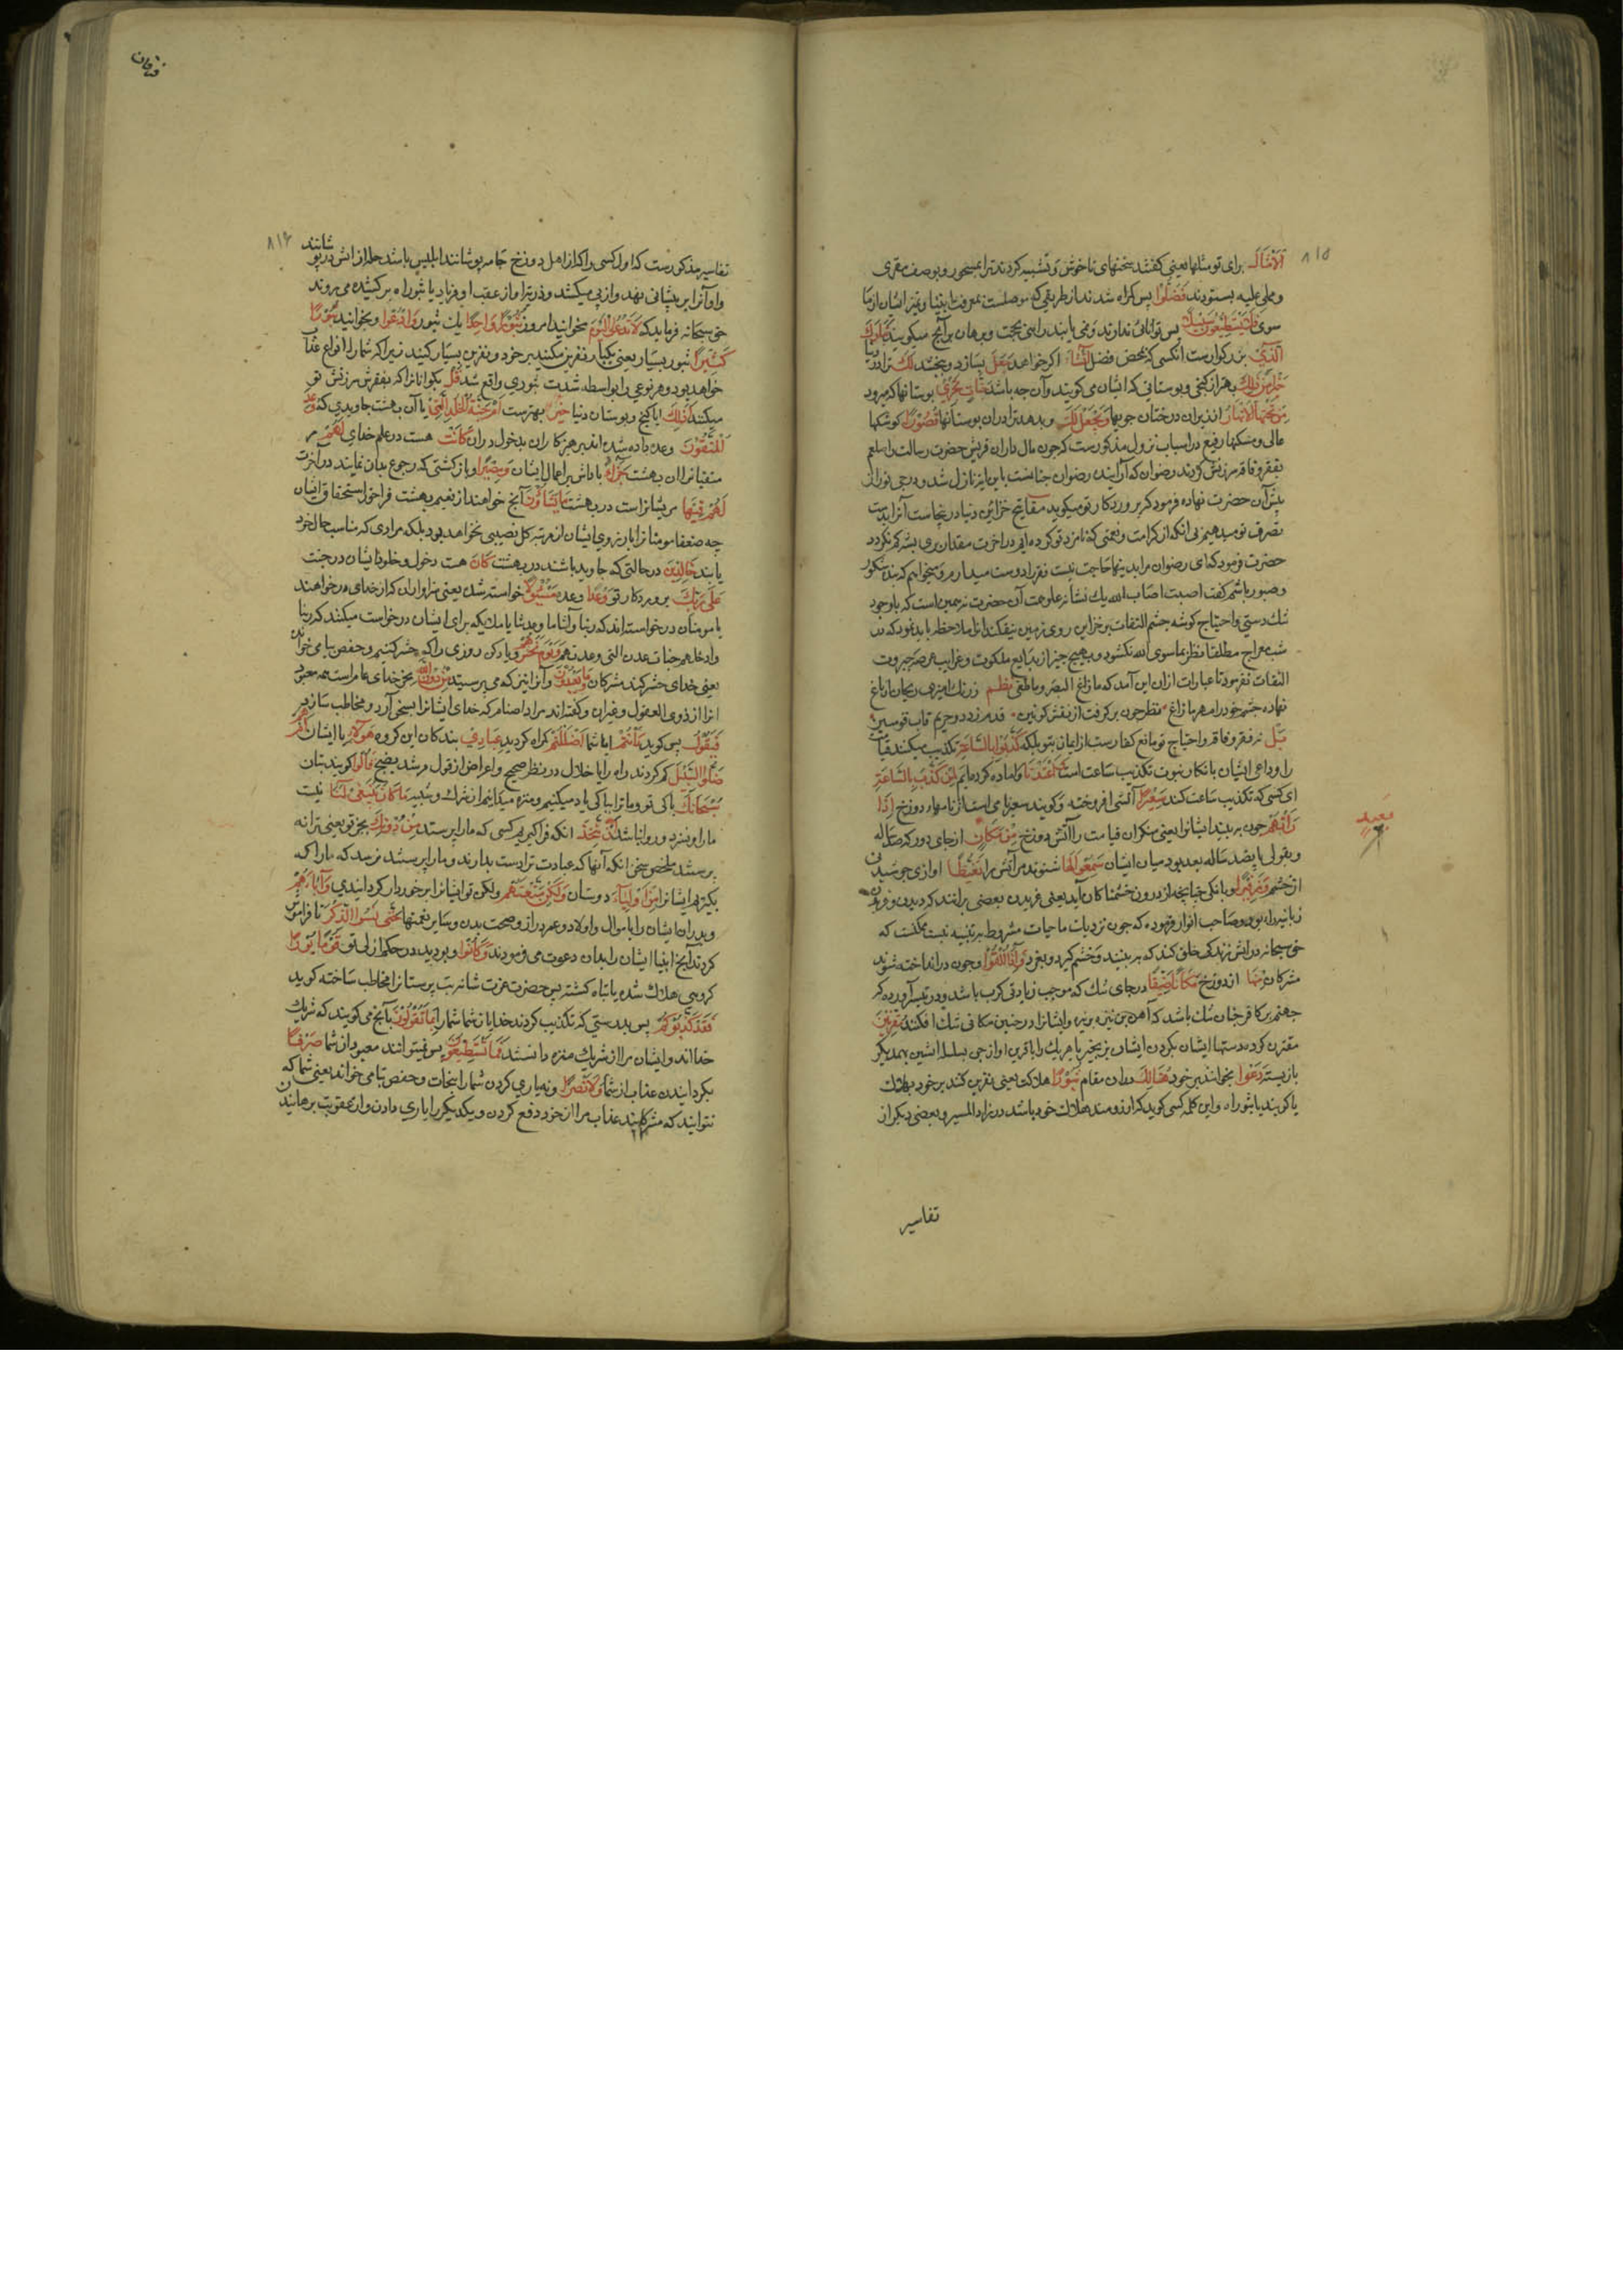 ۸۱۵
الْاَمْثَالَ برای تو مثلها یعنی گفتند سخنهای ناخوش و تشبیه کردند ترا بمسحور و بوصف مفتری
و مملی علیه بستودند فَضَلُّوا پس گمراه شدند از طریقی که موصلست بمعرفت انبیا و تمیز ایشان از ما
سوی فَلَا يَسْتَطِيعُونَ سَبِيلًا پس توانائی ندارند و نمی یابند راهی بحجت و برهان بر آنچ میگویند تَبَارَكَ
الَّذِي بزرگوارست آنکسی که بمحض فضل اِنْ شَاءَ اگر خواهد جَعَلَ بسازد و بخشد لَكَ ترا در دنیا
خَيْرًا مِنْ ذَلِكَ بهتر از گنجی و بوستانی که ایشان می گویند و آن چه باشد جَنَّاتٍ تَجْرِي بوستانها که میرود
مِنْ تَحْتِهَا الْاَنْهَارُ از زیر آن درختان جویها وَيَجْعَلْ لَكَ و بدهد ترا در ان بوستانها قُصُورًا کوشکها
عالی و مسکنها رفیع در اسباب نزول مذکورست که چون مال داران قریش حضرت رسالت را صلعم
بفقر و فاقه سرزنش کردند رضوان که آراینده رضوان جنانست با این آیه نازل شد و درجی نور از
پیش آن حضرت نهاده فرمود که پروردکار تو میگوید مفاتیح خزاین دنیا در ینجاست آنرا بدست
تصرف تو میدهیم بی آنکه از کرامت و نعمتی که نامزد تو کرده ایم در اخرت مقدار پر پشه کم نگردد
حضرت فرمود که ای رضوان مرا بدینها حاجت نیست فقر را دوست میدارم و میخواهم که بنده شکور
و صبور باشم گفت اصبت اصاب الله بك یك نشانه علو همت آن حضرت ترجمین است که با وجود
تنك دستی و احتیاج گوشه چشم التفات بر خزاین روی زمین نیفکند انرا ملاحظه باید نمود که در
شب معراج مطلقا نظر بما سوی الله نگشود و بهیچ چیز از بدایع ملکوت و غرایب عرصه جبروت
التفات نفرمود تا عبارات ازان این آمد که مازاغ البصر و ما طغی نظم زرنك آمیزی ریحان آن باغ
نهاده چشم خود را مهر ما زاغ نظر چون بر گرفت از نقش کونین قدم زد در حریم قاب قوسین
بَلْ نه فقر و فاقه و احتیاج تو مانع کفارست از ایمان بتو بلکه كَذَّبُوا بِالسَّاعَةِ تکذیب میکنند قیامت
را و داعی ایشان بانکار نبوت تکذیب ساعت است وَاَعْتَدْنَا و اماده کرده ایم لِمَنْ كَذَّبَ بِالسَّاعَةِ
ای کسی که تکذیب ساعت کند سَعِيرًا آتشی افروخته و گویند سعیر نامی است از نامهاء دوزخ اِذَا
رَاَتْهُمْ چون ببیند ایشانرا یعنی منکران قیامت را آتش دوزخ مِنْ مَكَانٍ از جای دور که صد ساله
و بقولی پانصد ساله بعد بود میان ایشان سَمِعُوا لَهَا شنوند مر آتش را تَغَيُّظًا اوازی جوشیدنی
از خشم وَزَفِيرًا و بانگی چنانچه از درون خشمناکان آید یعنی غریدن بعضی برانند که دیدن و غریدن
زبانیه راه بود و صاحب انوار فرموده که چون نزدیات ما حیات مشروط بر تنبیه نیست ممکنست که
حق سبحانه در اتش زندگی خلق کند که به بینند و خشم گیرد و بغرد وَاِذَا اُلْقُوا و چون در انداخته شوند
مشرکان مِنْهَا از دوزخ مَكَانًا ضَيِّقًا در جای تنك که موجب زیادتی کرب باشد و در تیسیر آورده که
جهنم بر کافر چنان تنك باشد که آهن بن نیزه بر نیزه و ایشانرا در چنین مکانی تنك افکنند مُقَرَّنِينَ
مقترن کرده دستها ایشان بگردن ایشان بزنجیر یا هر یك را با قرین او از جن بسلسله آتشین بهمدیگر
باز بسته دَعَوْا بخوانند بر خود هُنَالِكَ دران مقام ثُبُورًا هلاکت یعنی نفرین کنند بر خود بهلاکت
یا گویند یا ثبوراه و این کلمه کسی گوید که ارزومند هلاك خود باشد در زاد المسیر و بعضی دیگر از
تفاسیر
بعید
فرقان
۸۱۶
تفاسیر مذکورست که اول کسی را که از اهل دوزخ جامه پوشانند ابلیس باشد حله از اتش در پو شانند
و او آنرا بر پیشانی نهد و از پی میکشد و ذریه او از عقب او فریاد یا ثبوراه بر کشیده می روند
حق سبحانه فرماید که لَا تَدْعُوا الْيَوْمَ مخوانید امروز ثُبُورًا وَاحِدًا یك ثبور وَادْعُوا و بخوانید ثُبُورًا
كَثِيرًا ثبور بسیار یعنی یکبار نفرین مکنید بر خود و نفرین بسیار کنید زیرا که شما را انواع عذاب
خواهد بود و هر نوعی را بواسطه شدت ثبوری واقع شد قُلْ بگو انانرا که بفقرش سرزنش تو
میکنند اَذَلِكَ ایا گنج و بوستان دنیا خَيْرٌ بهترست اَمْ جَنَّةُ الْخُلْدِ الَّتِي یا آن بهشت جاویدی که وُعِدَ
الْمُتَّقُونَ وعده داده شده اند پرهیزکاران بدخول دران كَانَتْ هست در علم خدای لَهُمْ مر
متقیانرا ان بهشت جَزَاءً پاداش بر اعمال ایشان وَمَصِيرًا و باز گشتی که رجوع بدان نمایند در آخرت
لَهُمْ فِيهَا مر یشانراست در بهشت مَا يَشَاؤُنَ آنچ خواهند از نعیم بهشت فراخور استحقاق ایشان
چه ضعفا مومنانرا بارزوی ایشان از مرتبه کل نصیبی نخواهد بود بلکه مرادی که مناسب حال خود
یابند خَالِدِينَ در حالتی که جاوید باشند در بهشت كَانَ هست دخول و خلود ایشان در جنت
عَلَى رَبِّكَ بر پروردکار تو وَعْدًا وعده مَسْئُولًا خواسته شده یعنی سزاوار ان که از خدای درخواهند
یا مومنان درخواسته اند که ربنا و آتنا ما وعدتنا یا ملایکه برای ایشان درخواست میکنند که ربنا
و ادخلهم جنات عدن التی وعدتهم وَيَوْمَ نَحْشُرُهُمْ و یاد کن روزی را که حشر کنیم و حفص بیا می خواند
یعنی خدای حشر کند مشرکان وَمَا يَعْبُدُونَ و آنرا نیز که می پرستید مِنْ دُونِ اللَّهِ بجز خدای عام است همه معبود
انرا از ذوی العقول و غیران و گفته اند مراد اصنام که خدای ایشانرا بسخن آرد و مخاطب سازد
فَيَقُولُ پس گوید ءَاَنْتُمْ ایا شما اَضْلَلْتُمْ گمراه کردید عِبَادِي بندکان این گروه هَؤُلَاءِ یا ایشان اَمْ هُمْ
ضَلُّوا السَّبِيلَ گم کردند راه را باخلال در نظر صحیح و اعراض از قول مرشد نصیح قَالُوا گویند بتان
سُبْحَانَكَ پاکی تو و ما ترا بپاکی یاد میکنیم و منزه میدانیم از شرك و شبیه مَا كَانَ يَنْبَغِي لَنَا نیست
مارا و نسزد و روا نباشد اَنْ نَتَّخِذَ انکه فراگیریم کسی که مارا پرستد مِنْ دُونِكَ بجز تو یعنی ترا نه
پرستند ملخص سخن انکه آنها که عبادت ترا دست بدارند و مارا پرستند نرسد که مارا که
بگیریم ایشانرا مِنْ اَوْلِيَاءَ دوستان وَلَكِنْ مَتَّعْتَهُمْ ولکن تو ایشانرا برخوردار کردانیدی وَآبَاءَهُمْ
و پدران ایشان را باموال و اولاد و عمر دراز و صحت بدن و سایر نعمتها حَتَّى نَسُوا الذِّكْرَ تا فراموش
کردند آنچ انبیا ایشان را بدان دعوت می فرمودند وَكَانُوا و بودند در حکم ازلی تو قَوْمًا بُورًا
گروهی هلاك شده یا تباه گشته پس حضرت عزت شانه بت پرستانرا مخاطب ساخته گوید
فَقَدْ كَذَّبُوكُمْ پس بدرستی که تکذیب کردند خدایان شما شما را بِمَا تَقُولُونَ بآنچ می گویند که شریك
خدا اند و ایشان مرا از شریك منزه دانستند فَمَا تَسْتَطِيعُونَ پس نمیتوانند معبودان شما صَرْفًا
بگردانیدن عذاب از شما وَلَا نَصْرًا و نه یاری کردن شما را نجات و حفص بتا می خواند یعنی شما که
نتوانید که مشرکانید عذاب مرا از خود دفع کردن و یکدیگر را یاری دادن و از عقوبت برهانیدن